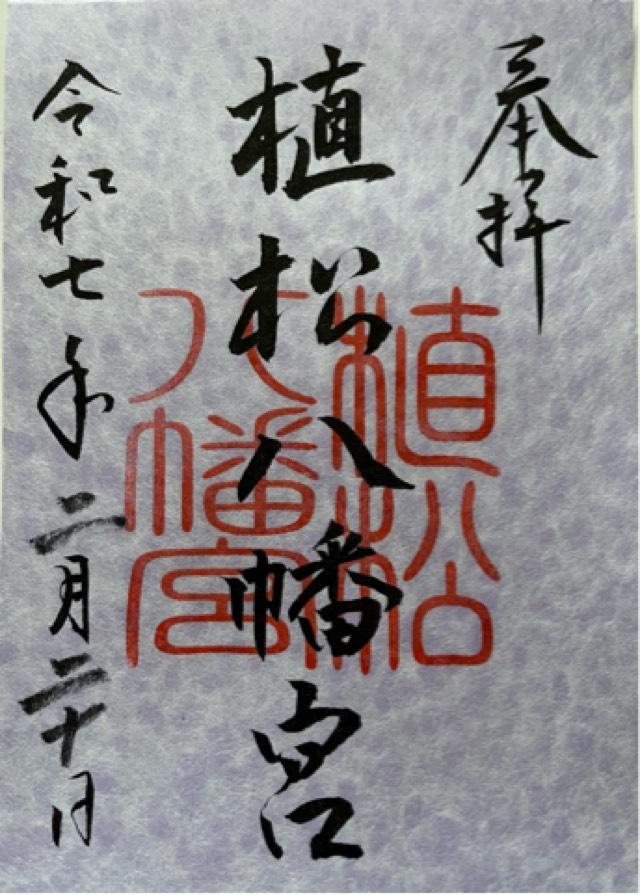 奉拝
植松八幡宮
植松
八幡宮
令和七年二月二十日